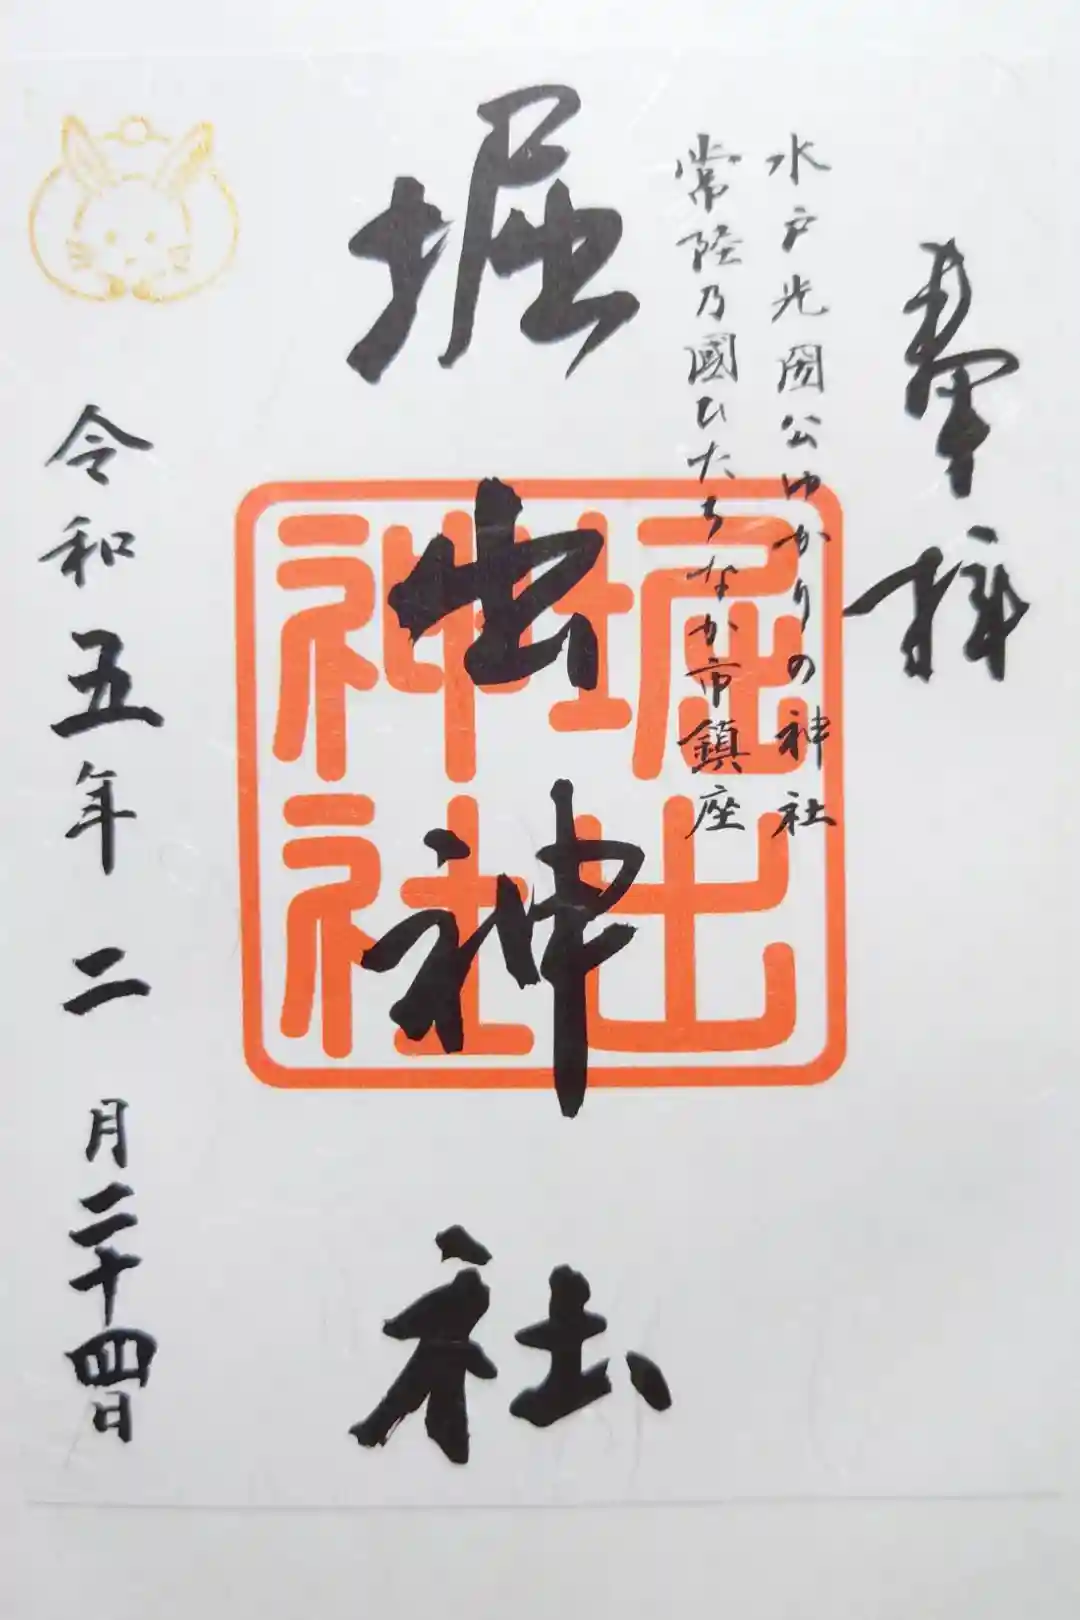 奉拝
水戸光圀公ゆかりの神社
常陸乃國ひたちなか市鎮座
堀出神社
堀出神社
令和五年二月二十四日